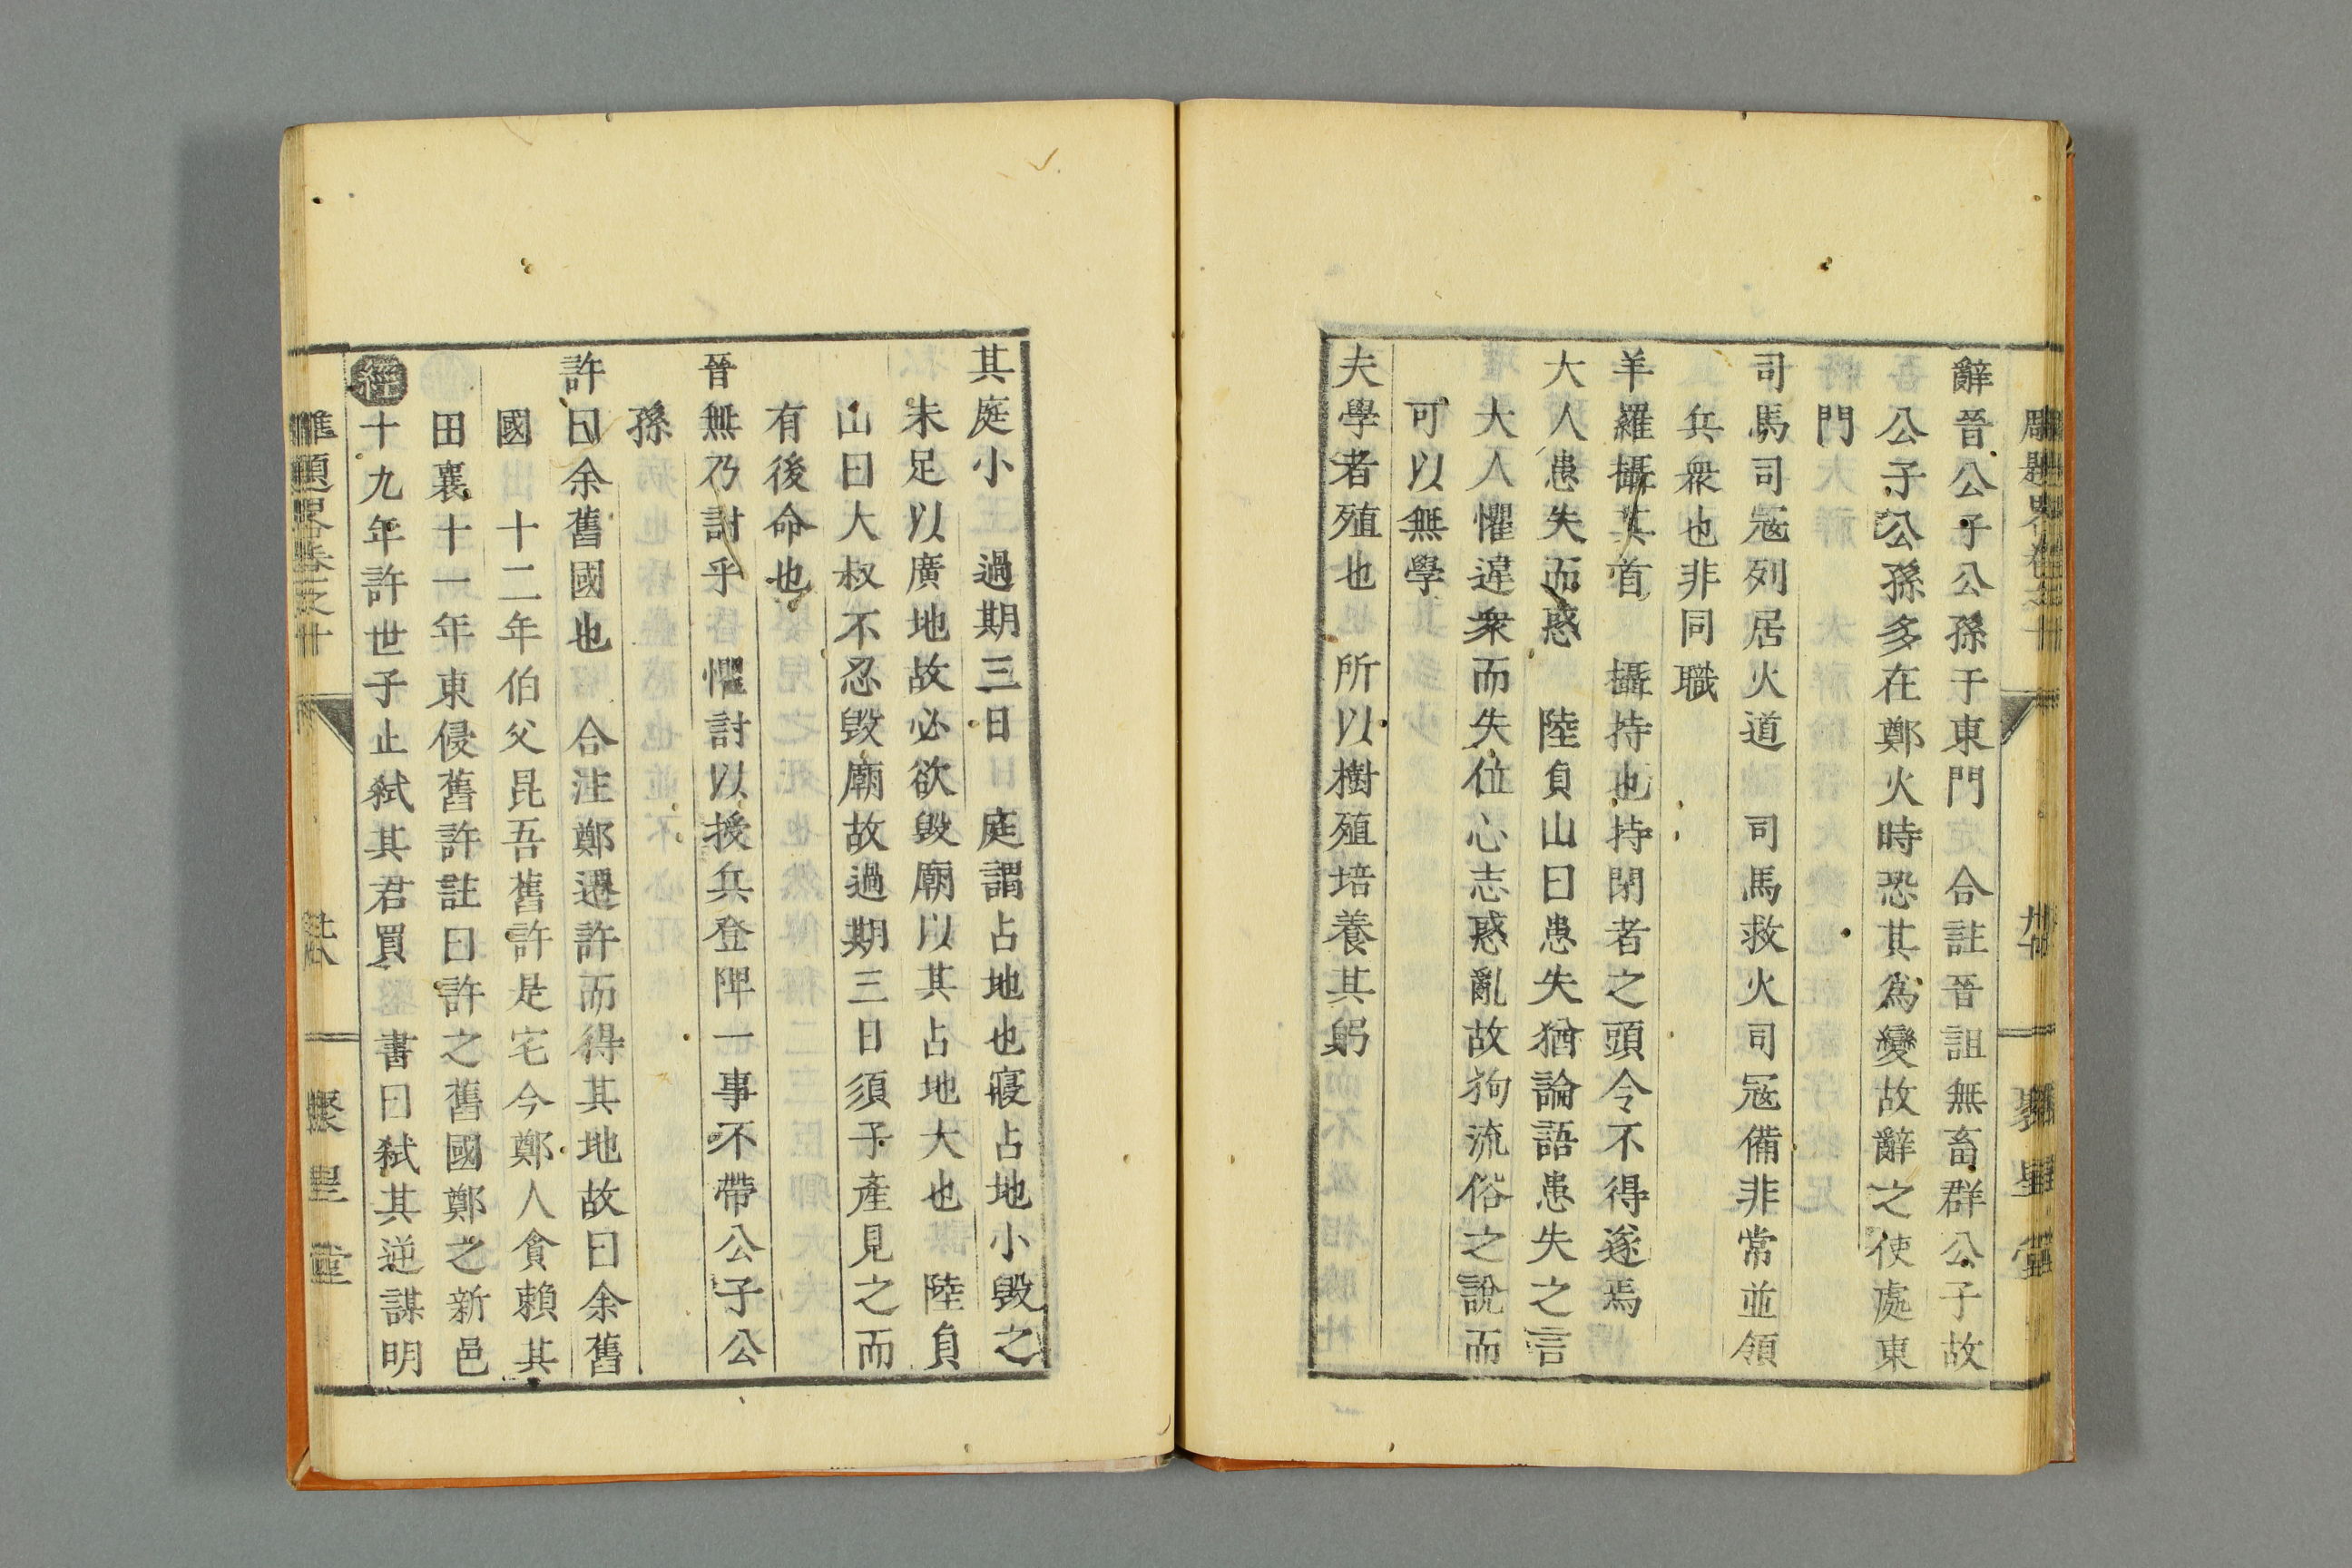 辭晉公子公孫于東門　合註晉詛無畜群公子故
公子公孫多在鄭火時恐其為變故辭之使處東
門
司馬司寇列居火道　司馬救火司寇備非常並領
兵衆也非同職
羊羅攝其首　攝持也持閉者之頭令不得遂焉
大人患失而惑　陸貞山曰患失猶論語患失之言
大人懼違衆而失位心志惑亂故狥流俗之說而
可以無學
夫學者殖也　所以樹殖培養其躬
其庭小　過期三日　庭謂占地也寢占地小毀之
未足以廣地故必欲毀廟以其占地大也　陸貞
山曰大叔不忍毀廟故過期三日須子產見之而
有後命也
晉無乃討乎　懼討以授兵登陴一事不帶公子公
孫
許曰余舊國也　合注鄭遷許而得其地故曰余舊
國　十二年伯父昆吾舊許是宅今鄭人貪賴其
田襄十一年東侵舊許註曰許之舊國鄭之新邑
經十九年許世子止弒其君買　書曰弒其逆謀明
聚星堂